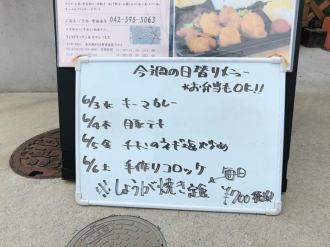 042-595-5063
今週の日替りメニュー
*お弁当もOK!!
6/3水 キーマカレー
6/4木 豚テキ
6/5金 チキンのネギ塩炒め
6/6土 手作りコロッケ
しょうが焼き定食 毎日
¥700(税込)